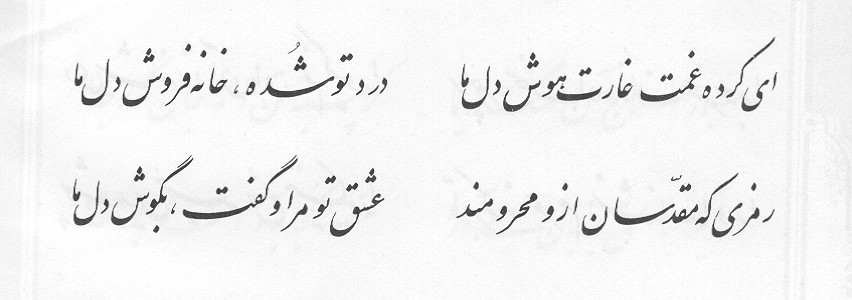 ای کرده غمت غارت هوش دل ما درد تو شُده، خانه فروش دل ما
رمزی که مقدّسان ازو محرومند عشق تو مر او گفت، بگوش دل ما